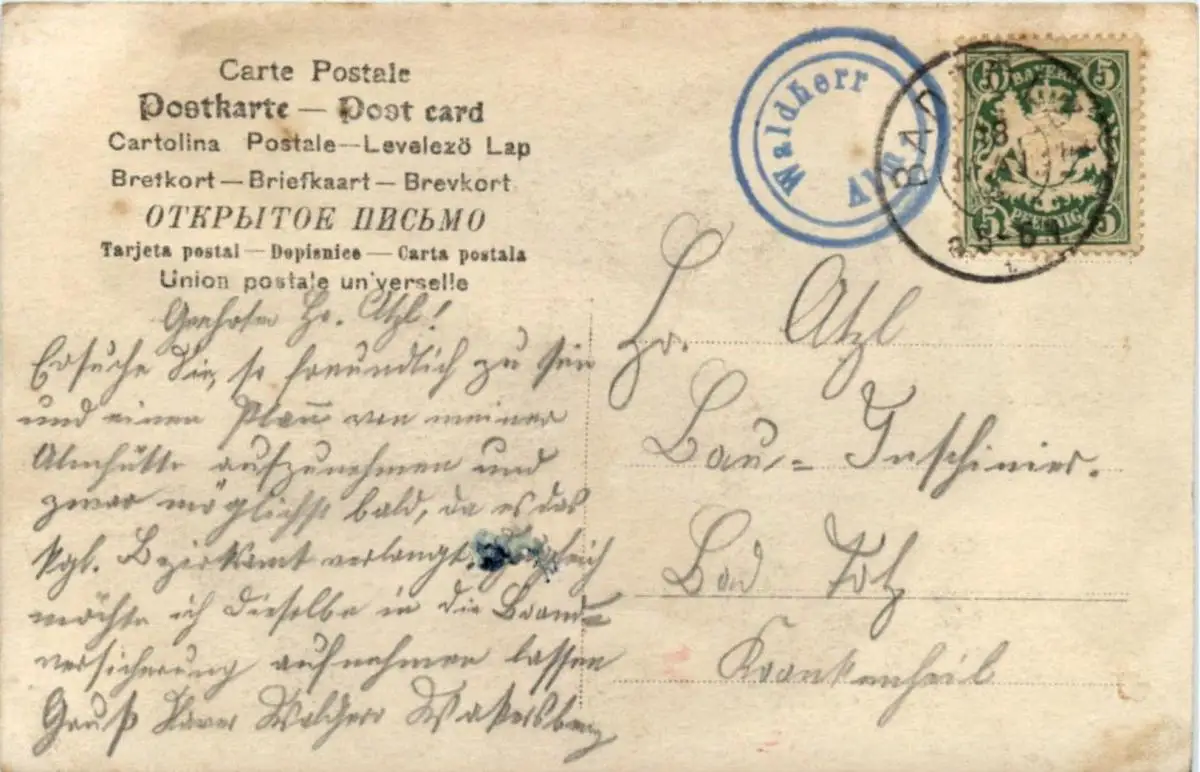 Carte Postale
Postkarte — Post card
Cartolina Postale — Levelező Lap
Brefkort — Briefkaart — Brevkort
ОТКРЫТОЕ ПИСЬМО
Tarjeta postal — Dopisnice — Carta postala
Union postale universelle
Waldherr
Alm
BAD
BAYERN
5 5
PFENNIG
5 5
Hr. Atzl!
Ersuche Sie, so freundlich zu sein
und einen Plan von meiner
Almhütte aufzunehmen und
zwar möglichst bald, da es das
kgl. Bezirksamt verlangt. Zugleich
möchte ich dieselbe in die Brand=
versicherung aufnehmen lassen
Gruß Xaver Waldherr Wakersberg
Hr. Atzl
Bau-Inschinier.
Bad Tölz
Krankenheil